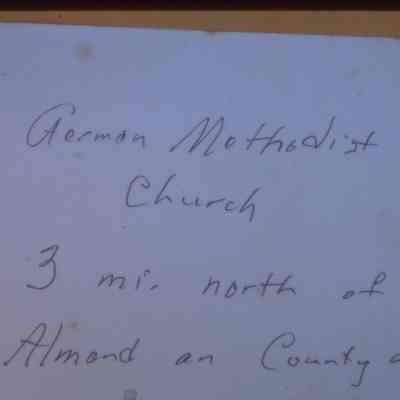 German Methodist
Church
3 mi. north of
Almond an County